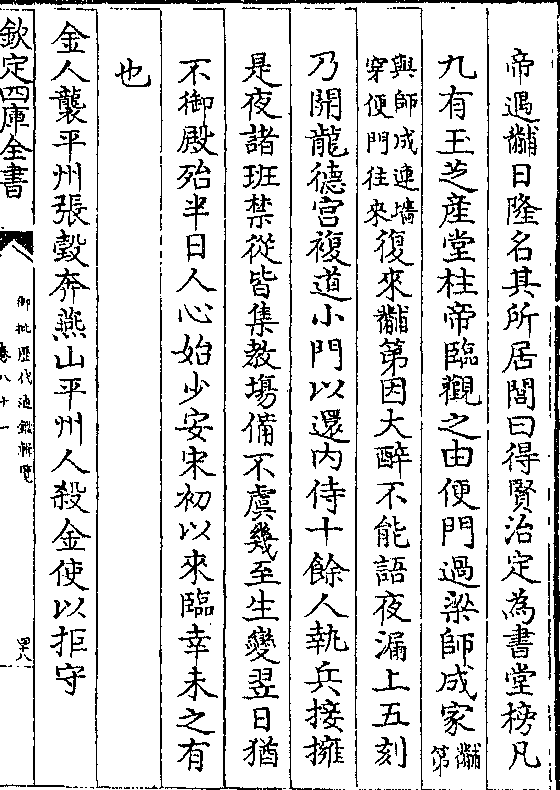 帝遇黼日隆名其所居閣曰得賢治定為書堂榜凡
九有玉芝産堂柱帝臨觀之由便門過梁師成家黼第
與師成連墻穿便門往來復來黼第因大醉不能語夜漏上五刻
乃開龍德宫複道小門以還内侍十餘人執兵接擁
是夜諸班禁從皆集教塲備不虞幾至生變翌日猶
不御殿殆半日人心始少安宋初以來臨幸未之有
也
金人襲平州張㲄奔燕山平州人殺金使以拒守
欽定四庫全書
御批歴代通鑑輯覽
卷八十一
四八